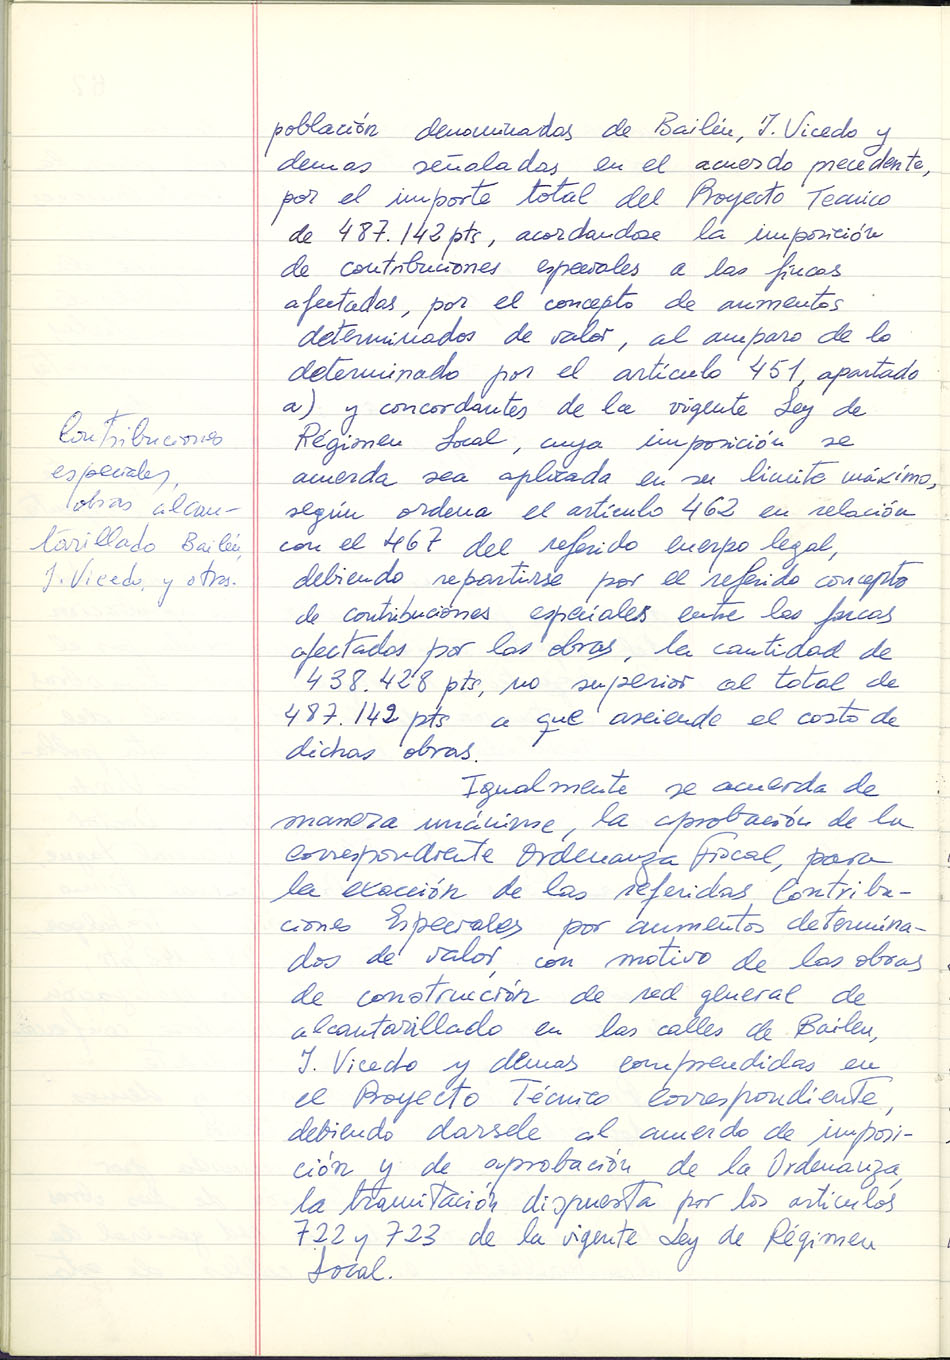 población denominadas de Bailén, J. Vicedo y
demas señaladas en el acuerdo precedente,
por el importe total del Proyecto Tecnico
de 487.142 pts, acordandose la imposición
de contribuciones especiales a las fincas
afectadas, por el concepto de aumentos
determinados de valor, al amparo de lo
determinado por el artículo 451, apartado
a) y concordantes de la vigente Ley de
Régimen Local, cuya imposición se
acuerda sea aplicada en su limite máximo,
según ordena el artículo 462 en relación
con el 467 del referido cuerpo legal,
debiendo repartirse por el referido concepto
de contribuciones especiales entre las fincas
afectadas por las obras, la cantidad de
438.428 pts, no superior al total de
487.142 pts a que asciende el costo de
dichas obras.
Contribuciones
especiales,
obras alcan-
tarillado Bailén,
J. Vicedo, y otras.
Igualmente se acuerda de
manera unánime, la aprobación de la
correspondiente Ordenanza Fiscal, para
la exacción de las referidas Contribu-
ciones Especiales por aumentos determina-
dos de valor, con motivo de las obras
de construcción de red general de
alcantarillado en las calles de Bailen,
J. Vicedo y demas comprendidas en
el Proyecto Técnico correspondiente,
debiendo darsele al acuerdo de imposi-
ción y de aprobación de la Ordenanza,
la tramitación dispuesta por los articulos
722 y 723 de la vigente Ley de Régimen
Local.